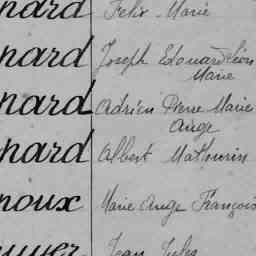 nard Felix Marie
nard Joseph Edouard Léon
Marie
nard Adrien Pierre Marie
Ange
nard Albert Mathurin
noux Marie Ange François
Jean Jules